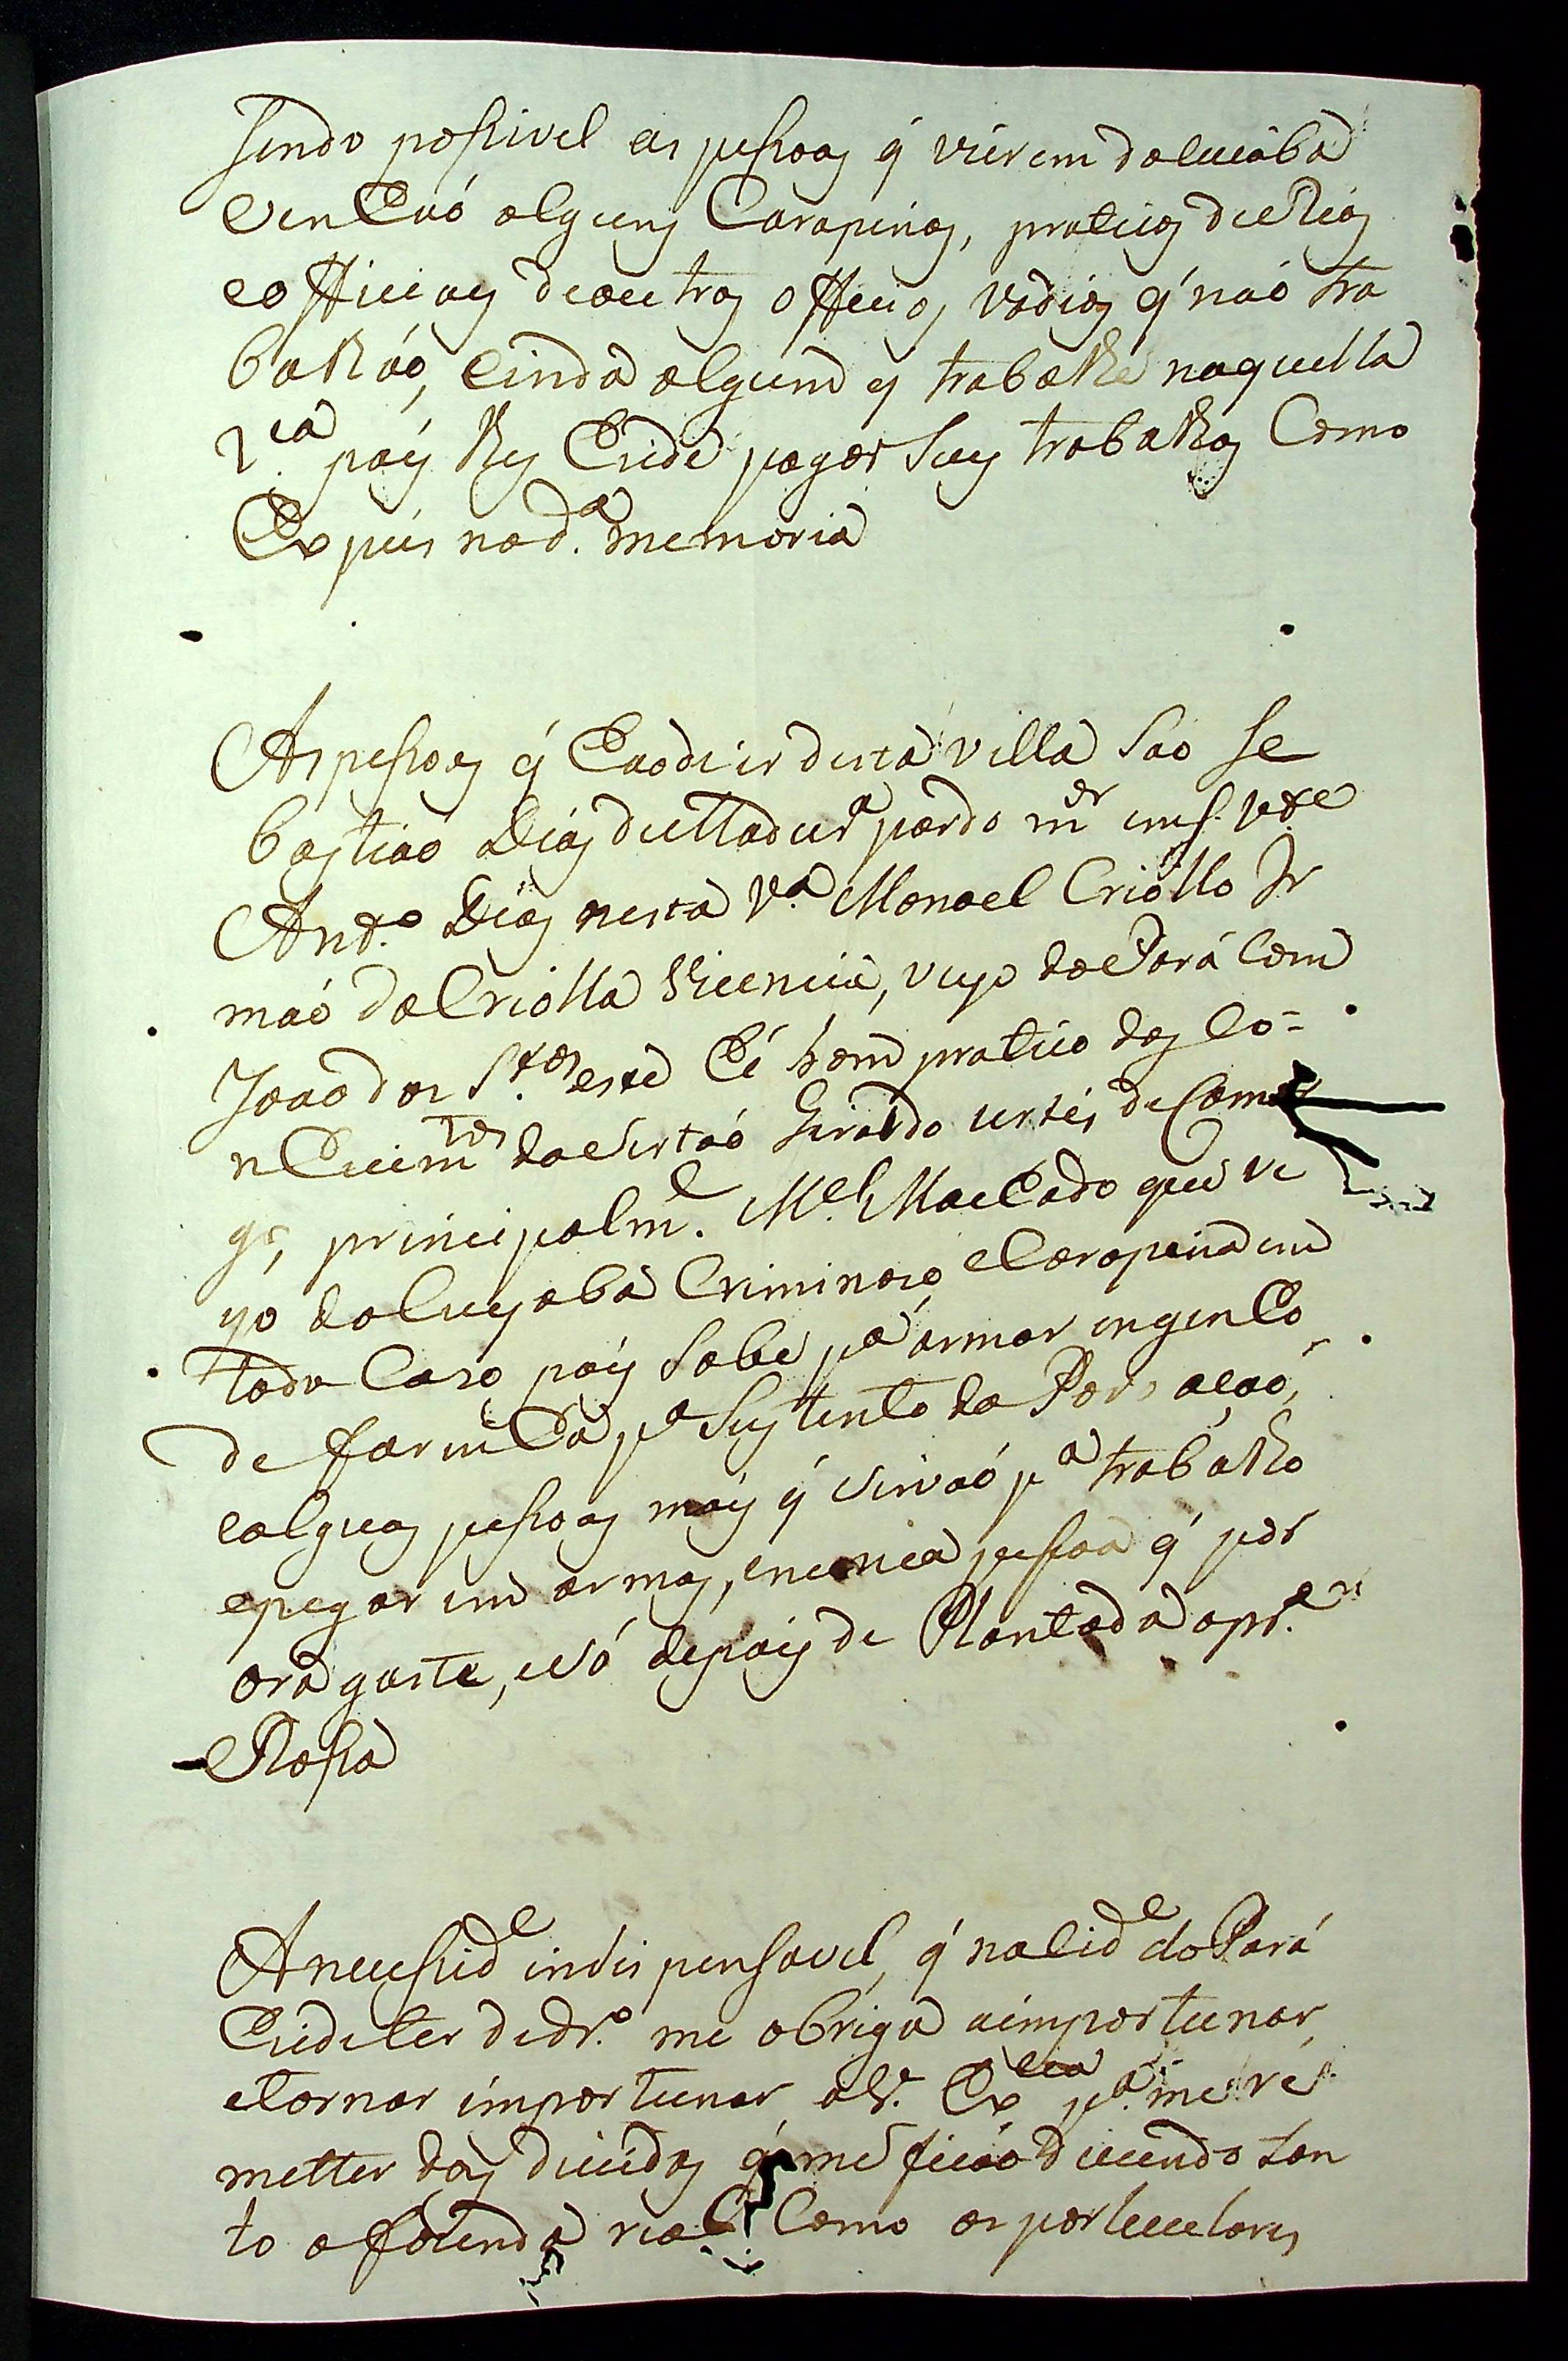 Sendo possivel as pessoas q̃ vierem do Cuiabá
venhaó alguns Carapinas, praticos de Rios
e officiaes de outros officios, vadios q̃ naó tra
balháo, e inda algum q̃ trabalhe naquella
V.ᵃ pois lhes heide pagar Seus trabalhos Como
Expús na d.ᵃ memoria
As pessoas q̃ haode ir desta villa Sao Se
bastiaó Dias pardo m.ᵒʳ em S. V.ᵗᵉ
Ant.º Dias nesta V.ᵃ Manoel Criollo Ir
máo da Criolla Vicencia, veyo do Pará Com
Joao dos S.ᵗᵒˢ este hé bom pratico dos Co=
nhecim.ᵗᵒˢ do Sertaó Giraldo Cortés de Cama
go, principalm.ᵉ M.ᵉˡ Machado que ve
yo do Cuyabá Criminozo, e Carapina em
todo Caso pois Sabe p.ᵃ armar engenho
de farinha p.ᵃ Sustento da Povoaçaó,
e alguas pessoas mais q̃ Sirvaó p.ᵃ trabalho
e pegar em armas, e nunca pessoa q̃ por
ora gaste, e Só depois de Plantada a pr.ᵃ
Rossa
A necessid.ᵉ indispensavel, q̃ na Cid.ᵉ do Pará
heide ter de dr.º me obriga a importunar,
e tornar importunar, a V. Ex.ᶜⁱᵃ p.ᵃ me re
metter das dividas q̃ me ficáo devendo tan
to a fazenda real Como os particulares